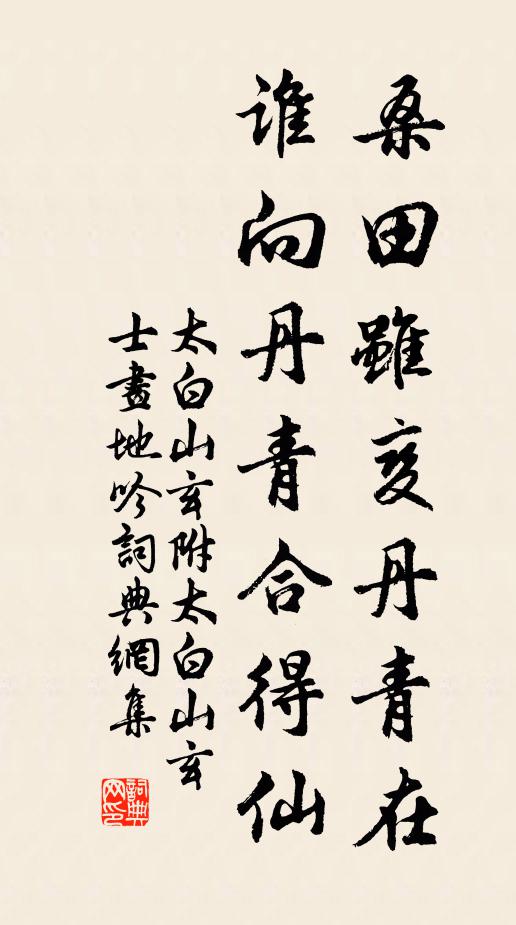 桑田雖变丹青在
谁向丹青合得仙
太白山玄附太白山玄
士畫地吟詞典網集
詞典
网印